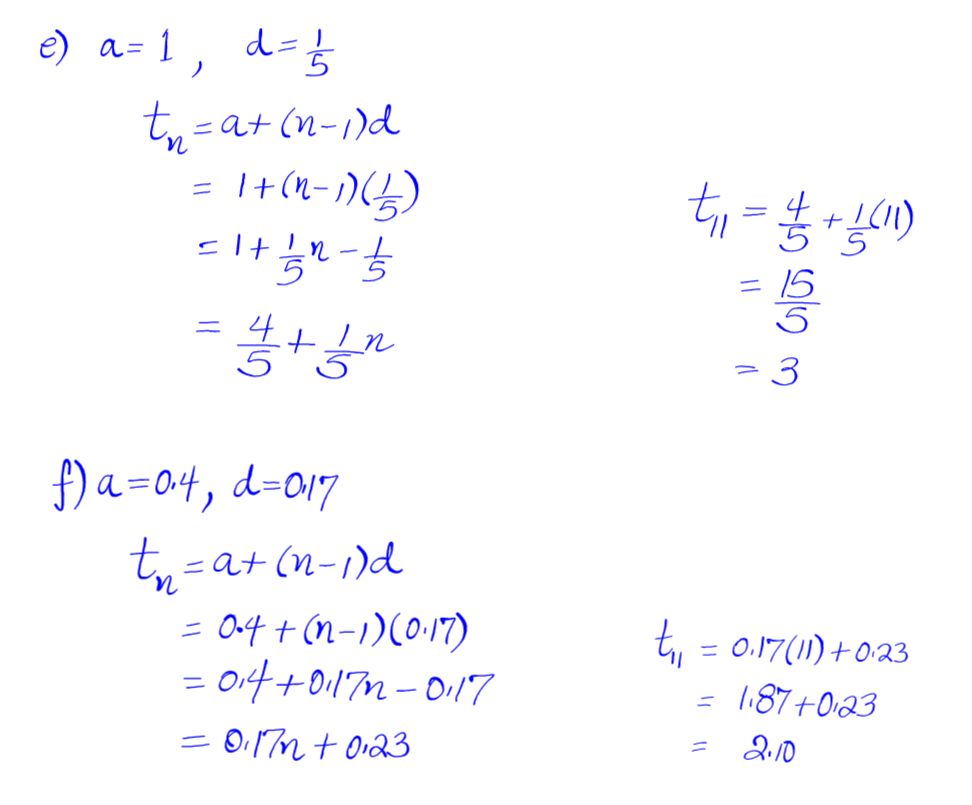 e) a = 1 , d = 1/5
tₙ = a + (n-1)d
= 1 + (n-1)(1/5)
= 1 + 1/5 n - 1/5
= 4/5 + 1/5 n
t₁₁ = 4/5 + 1/5 (11)
= 15/5
= 3
f) a = 0.4, d = 0.17
tₙ = a + (n-1)d
= 0.4 + (n-1)(0.17)
= 0.4 + 0.17n - 0.17
= 0.17n + 0.23
t₁₁ = 0.17(11) + 0.23
= 1.87 + 0.23
= 2.10